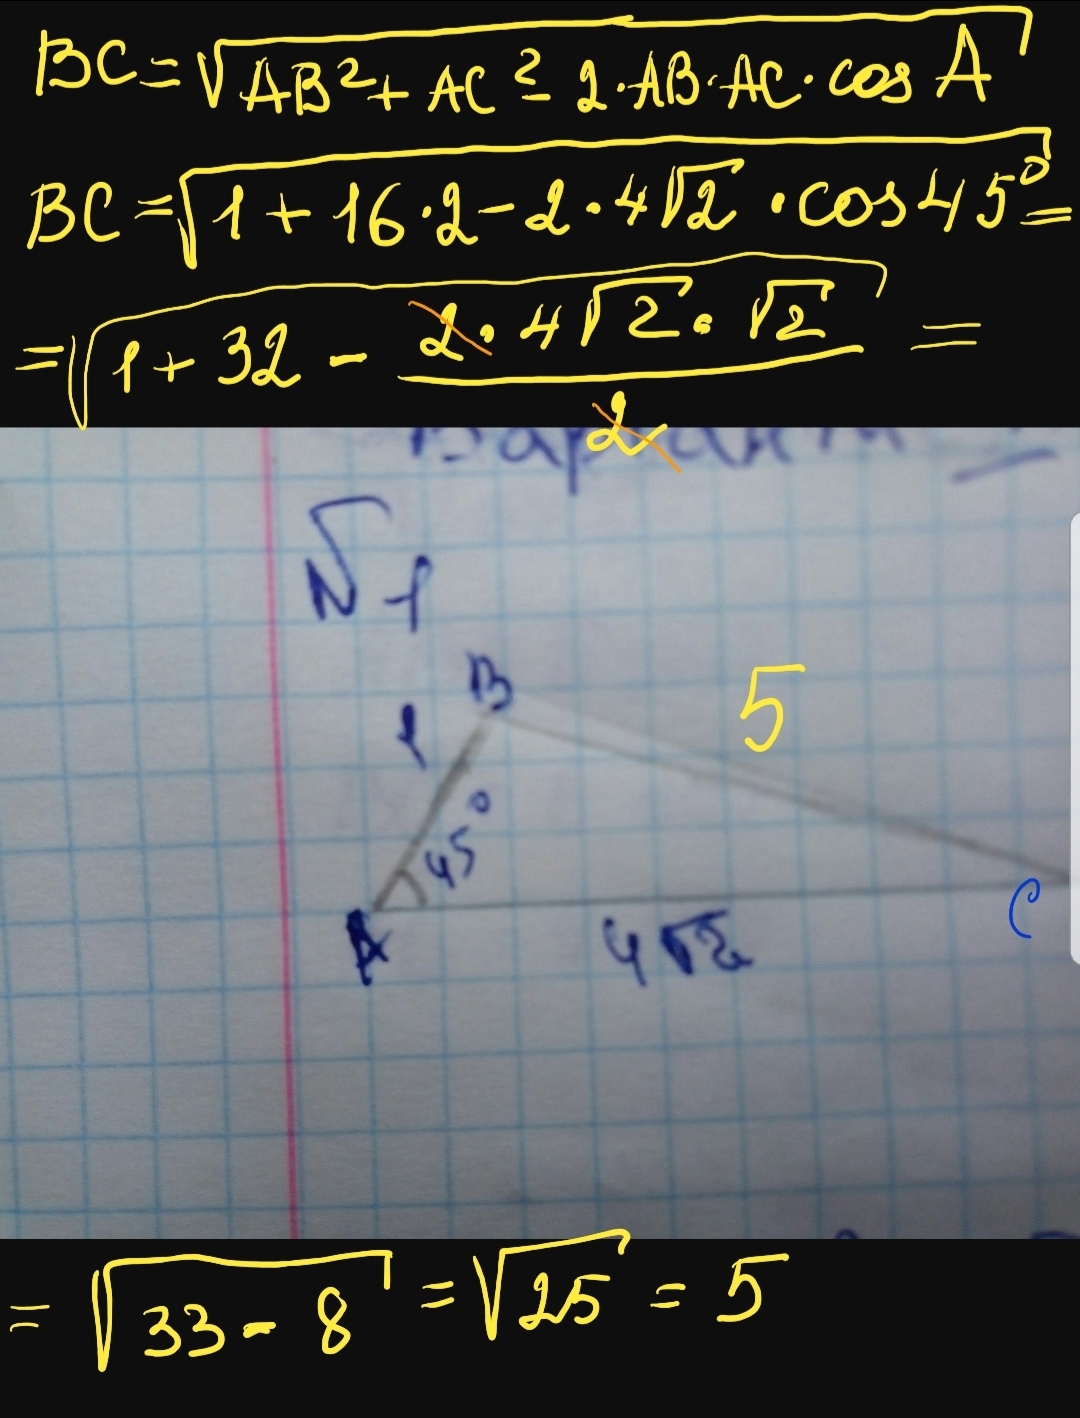 BC=√AB²+AC²-2·AB·AC·cos A
BC=√1+16·2-2·4√2·cos45°=
=√1+32-2·4√2·√2/2=
Вариант
№1
B
1
5
45°
A
4√2
C
=√33-8=√25=5